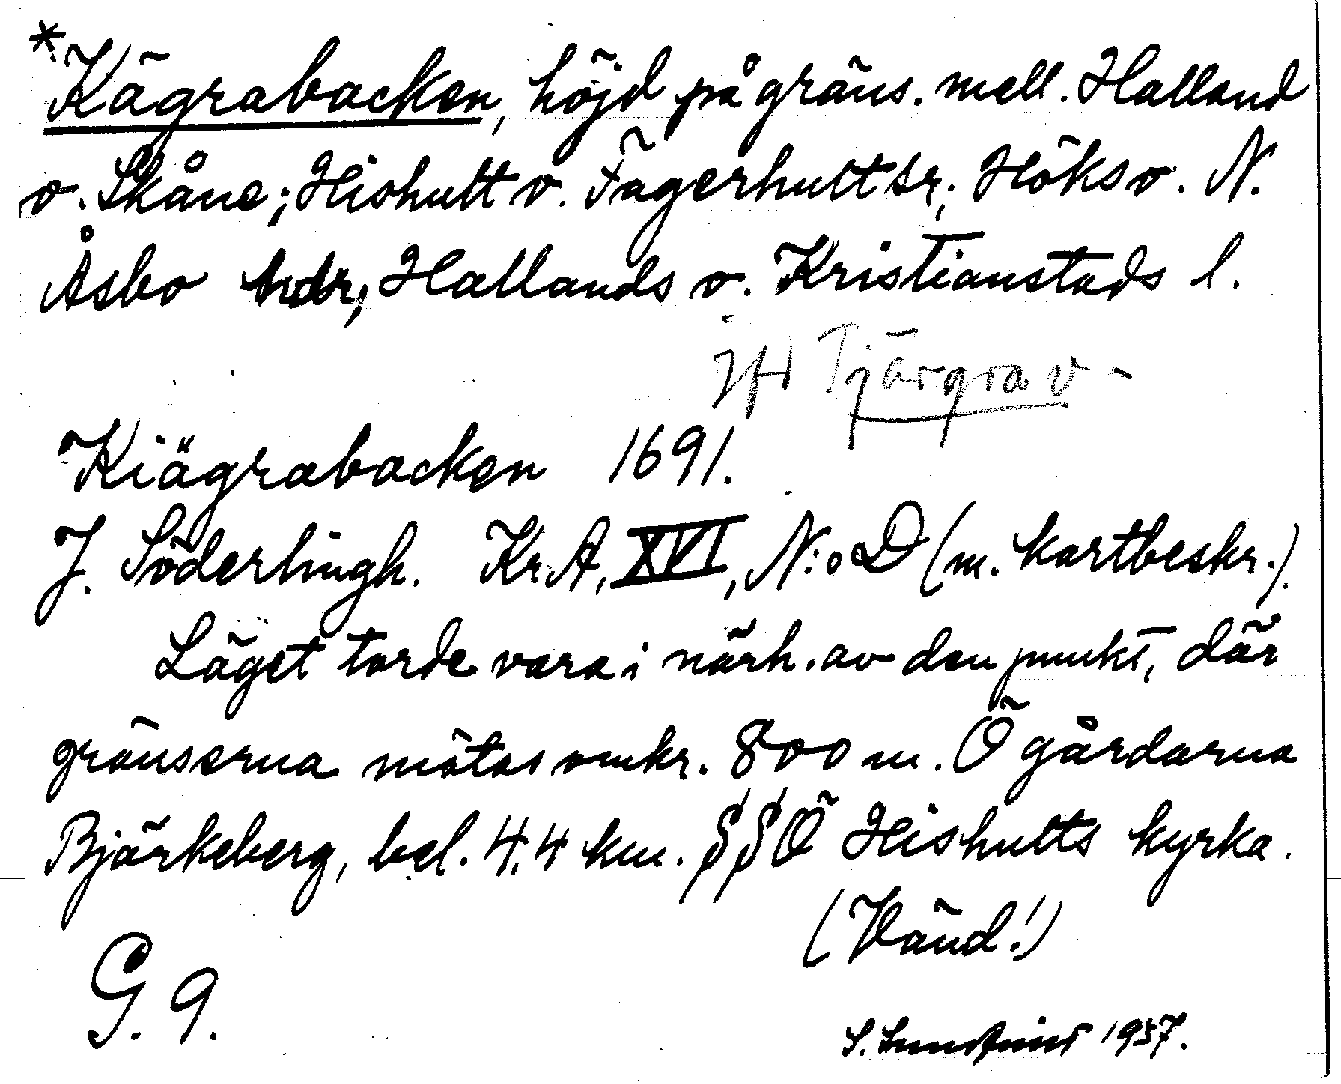 *Kägrabacken, höjd på gräns. mell. Halland
o. Skåne; Hishult o. Fagerhult sr, Höks o. N.
Åsbo hdr, Hallands o. Kristianstads l.
jfr Tjärgrav-
Kiägrabacken 1691.
J. Söderlingh. Kr.A. XVI, N:o D (m. kartbeskr.).
Läget torde vara i närh. av den punkt, där
gränserna mötas omkr. 800 m. Ö gårdarna
Bjärkeberg, bel. 4.4 km. SSÖ Hishults kyrka.
(Vänd!)
G. 9.
S. Sundqvist 1957.